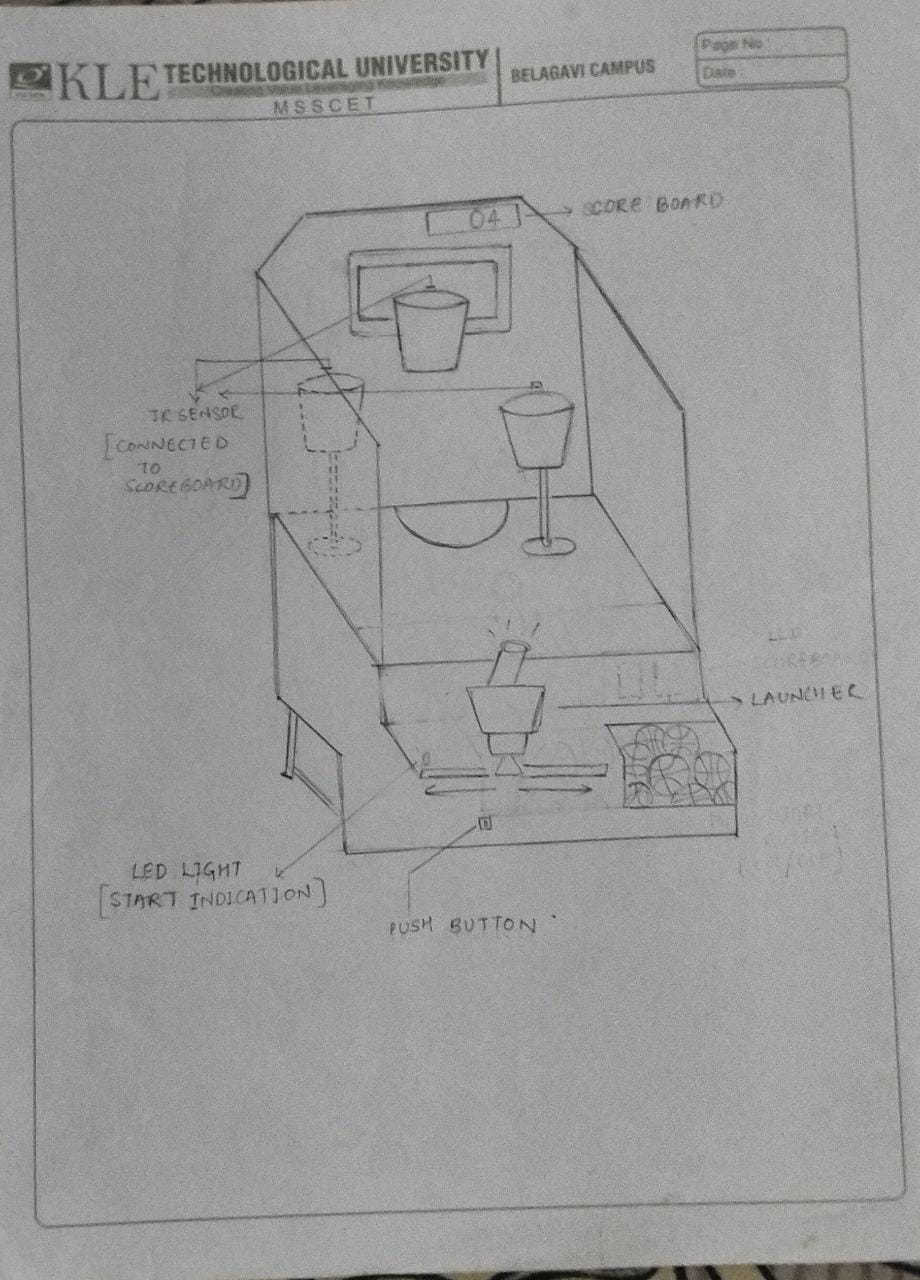 KLE TECHNOLOGICAL UNIVERSITY
Creating Value Leveraging Knowledge
MSSCET
BELAGAVI CAMPUS
Page No :
Date :
04
SCORE BOARD
IR SENSOR
[CONNECTED
TO
SCOREBOARD]
SCOREBOARD
LAUNCHER
LED LIGHT
[START INDICATION]
PUSH BUTTON